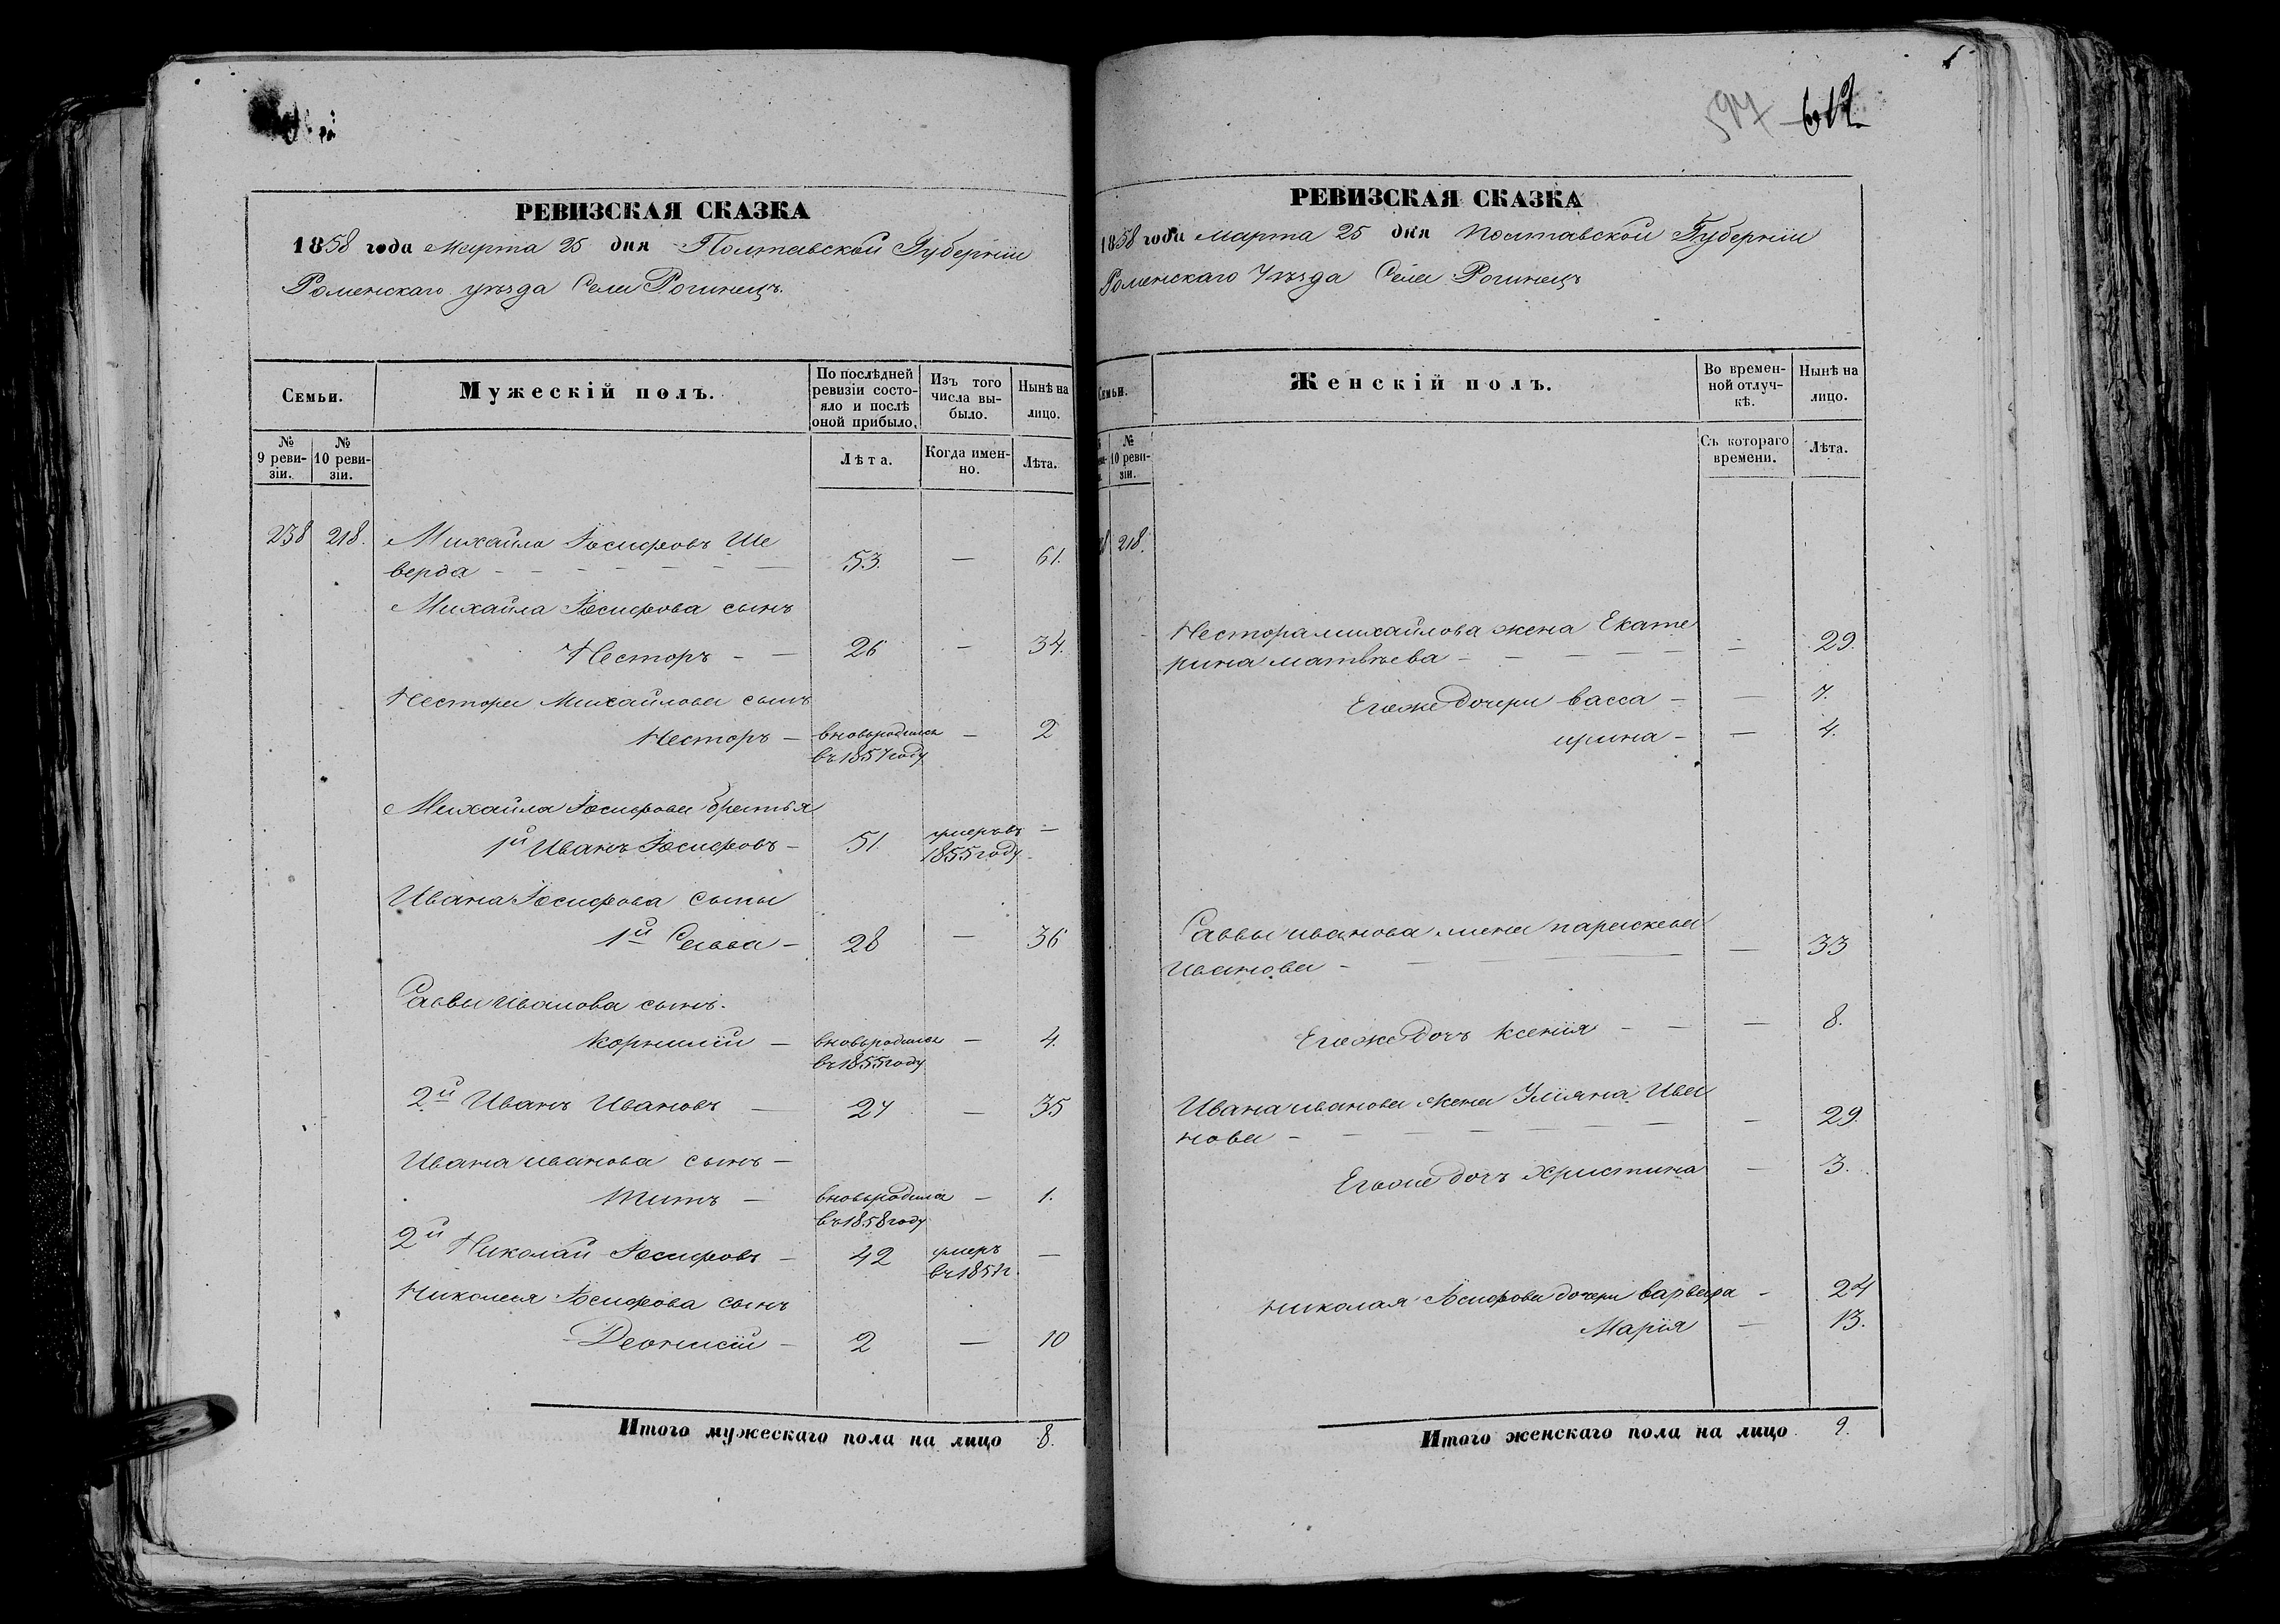 РЕВИЗСКАЯ СКАЗКА
1858 года Марта 25 дня Полтавской Губерніи
Роменскаго уѣзда Села Рогинецъ.
Семьи.
Мужескій полъ.
По послѣдней ревизіи состояло и послѣ оной прибыло.
Изъ того числа выбыло.
Нынѣ на лицо.
№ 9 ревизіи.
№ 10 ревизіи.
Лѣта.
Когда именно.
Лѣта.
238 218. Михайла Іосифовъ Ше
верда - - - - - - - 53. — 61.
Михайла Іосифова сынъ
Несторъ - — 26 — 34.
Нестора Михайлова сынъ
Несторъ — вновьродился — 2
въ 1857 году
Михайла Іосифова братья
1й Иванъ Іосифовъ — 51 умеръ въ —
1855 году.
Ивана Іосифова сыны
1й Савва — 28 — 36
Саввы Иванова сынъ.
Корнилій — вновьродился — 4.
въ 1855 году
2й Иванъ Ивановъ — 27 — 35
Ивана иванова сынъ —
Титъ — вновьродился — 1.
въ 1858 году
2й Николай Іосифовъ — 42 умеръ —
въ 1857 г.
Николая Іосифова сынъ
Деонисій — 2 — 10
Итого мужескаго пола на лицо 8.
597 612.
РЕВИЗСКАЯ СКАЗКА
1858 года Марта 25 дня Полтавской Губерніи
Роменскаго Уѣзда Села Рогинецъ
Семьи.
Женскій полъ.
Во временной отлучкѣ.
Нынѣ на лицо.
№ 10 ревизіи.
Съ котораго времени.
Лѣта.
218.
Нестора михайлова жена Екате
рина матвѣева - — — — — — — 29.
Егоже дочери васса — — 7.
ирина — — 4.
Саввы иванова жена параскева
Иванова - — — — — 33
Егоже дочь Ксенія - — — 8.
Ивана иванова жена Уліяна Ива
нова - — — — — — — — 29.
Егоже дочь христина — 3.
николая Іосифова дочери варвара - 24
Марія — 13.
Итого женскаго пола на лицо 9.